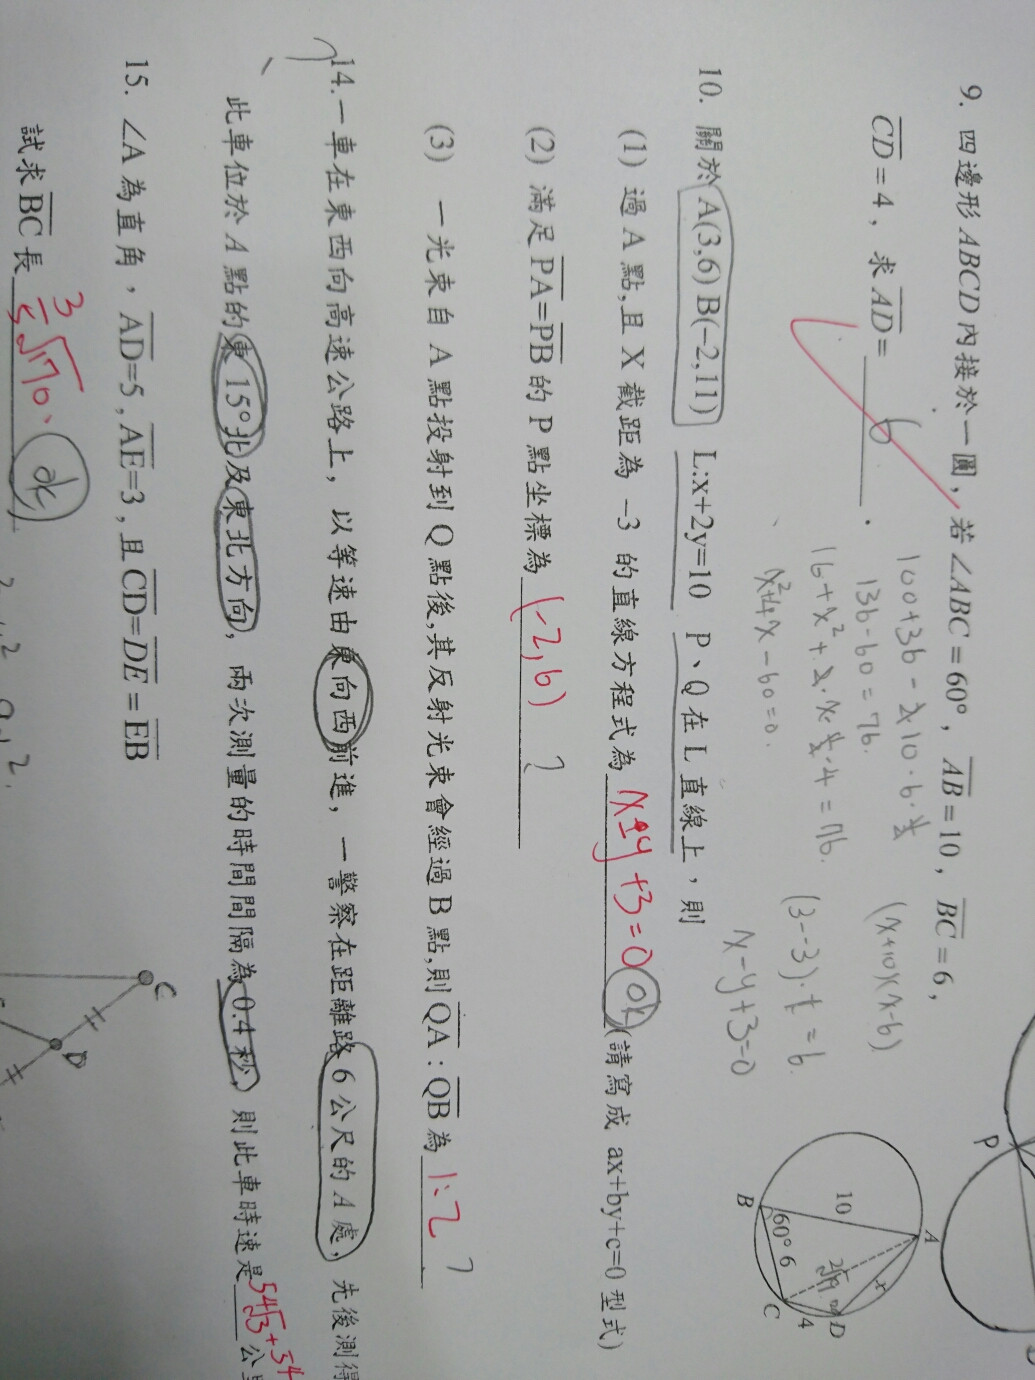 9. 四邊形 ABCD 內接於一圓，若 ∠ABC = 60°，AB = 10，BC = 6，
CD = 4，求 AD = 6．
100+36-2·10·6·½
136-60=76.
16+x²+2·x·½·4=76.
x²+4x-60=0.
(x+10)(x-6)
(3--3)·t=6.
x-y+3=0
P
A
10
B
60°
6
C
4
D
x
2√19
10. 關於 A(3,6) B(-2,11) L:x+2y=10 P、Q 在 L 直線上，則
(1) 過 A 點,且 X 截距為 -3 的直線方程式為 x-y+3=0 ok (請寫成 ax+by+c=0 型式)
(2) 滿足 PA=PB 的 P 點坐標為 (-2,6) ?
(3) 一光束自 A 點投射到 Q 點後,其反射光束會經過 B 點,則 QA : QB 為 1:2 ?
? 14. 一車在東西向高速公路上，以等速由東向西前進，一警察在距離路 6 公尺的 A 處，先後測得
此車位於 A 點的東 15°北及東北方向，兩次測量的時間間隔為 0.4 秒，則此車時速是 54√3+54 公里
15. ∠A 為直角，AD=5，AE=3，且 CD=DE=EB
試求 BC 長 3/5√170. ok
C
D